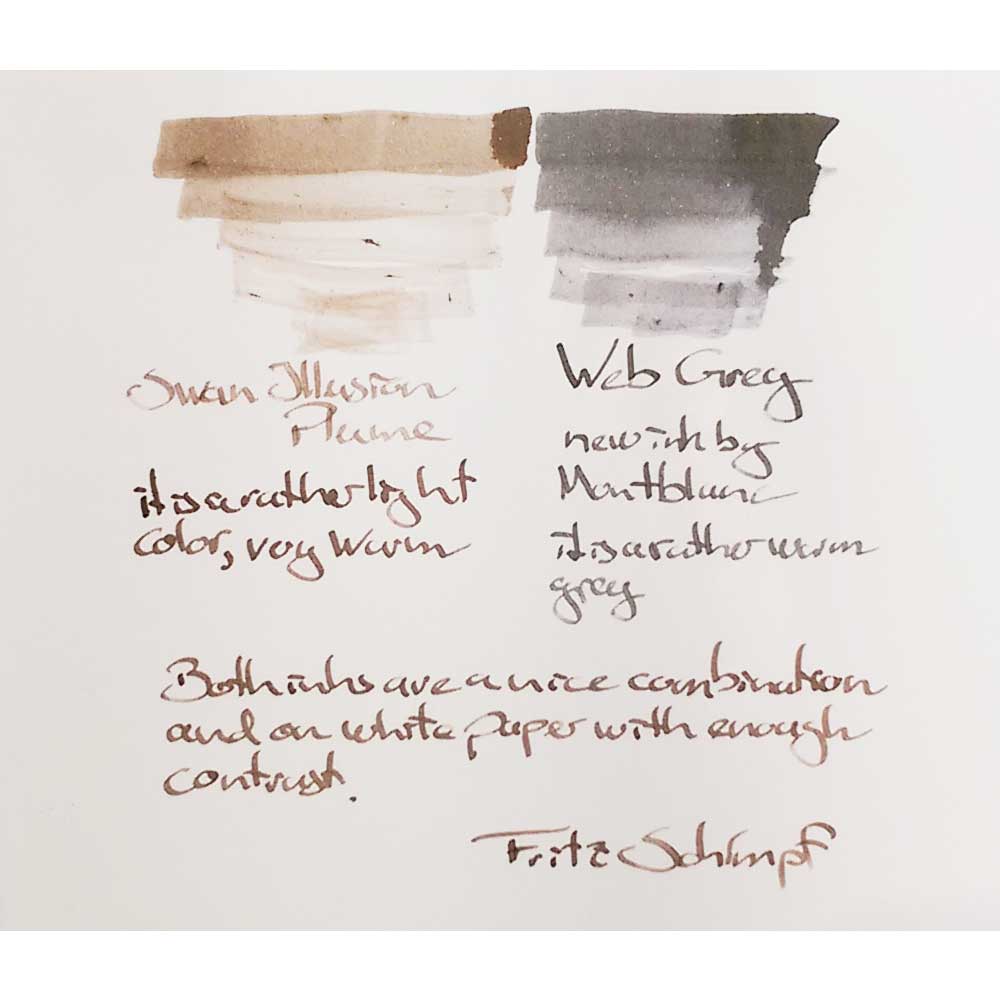 Swan Illusion
Plume
it is a rather light
color, very warm
Web Grey
new ink by
Montblanc
it is a rather warm
grey
Both inks are a nice combination
and on white paper with enough
contrast.
Fritz Schimpf